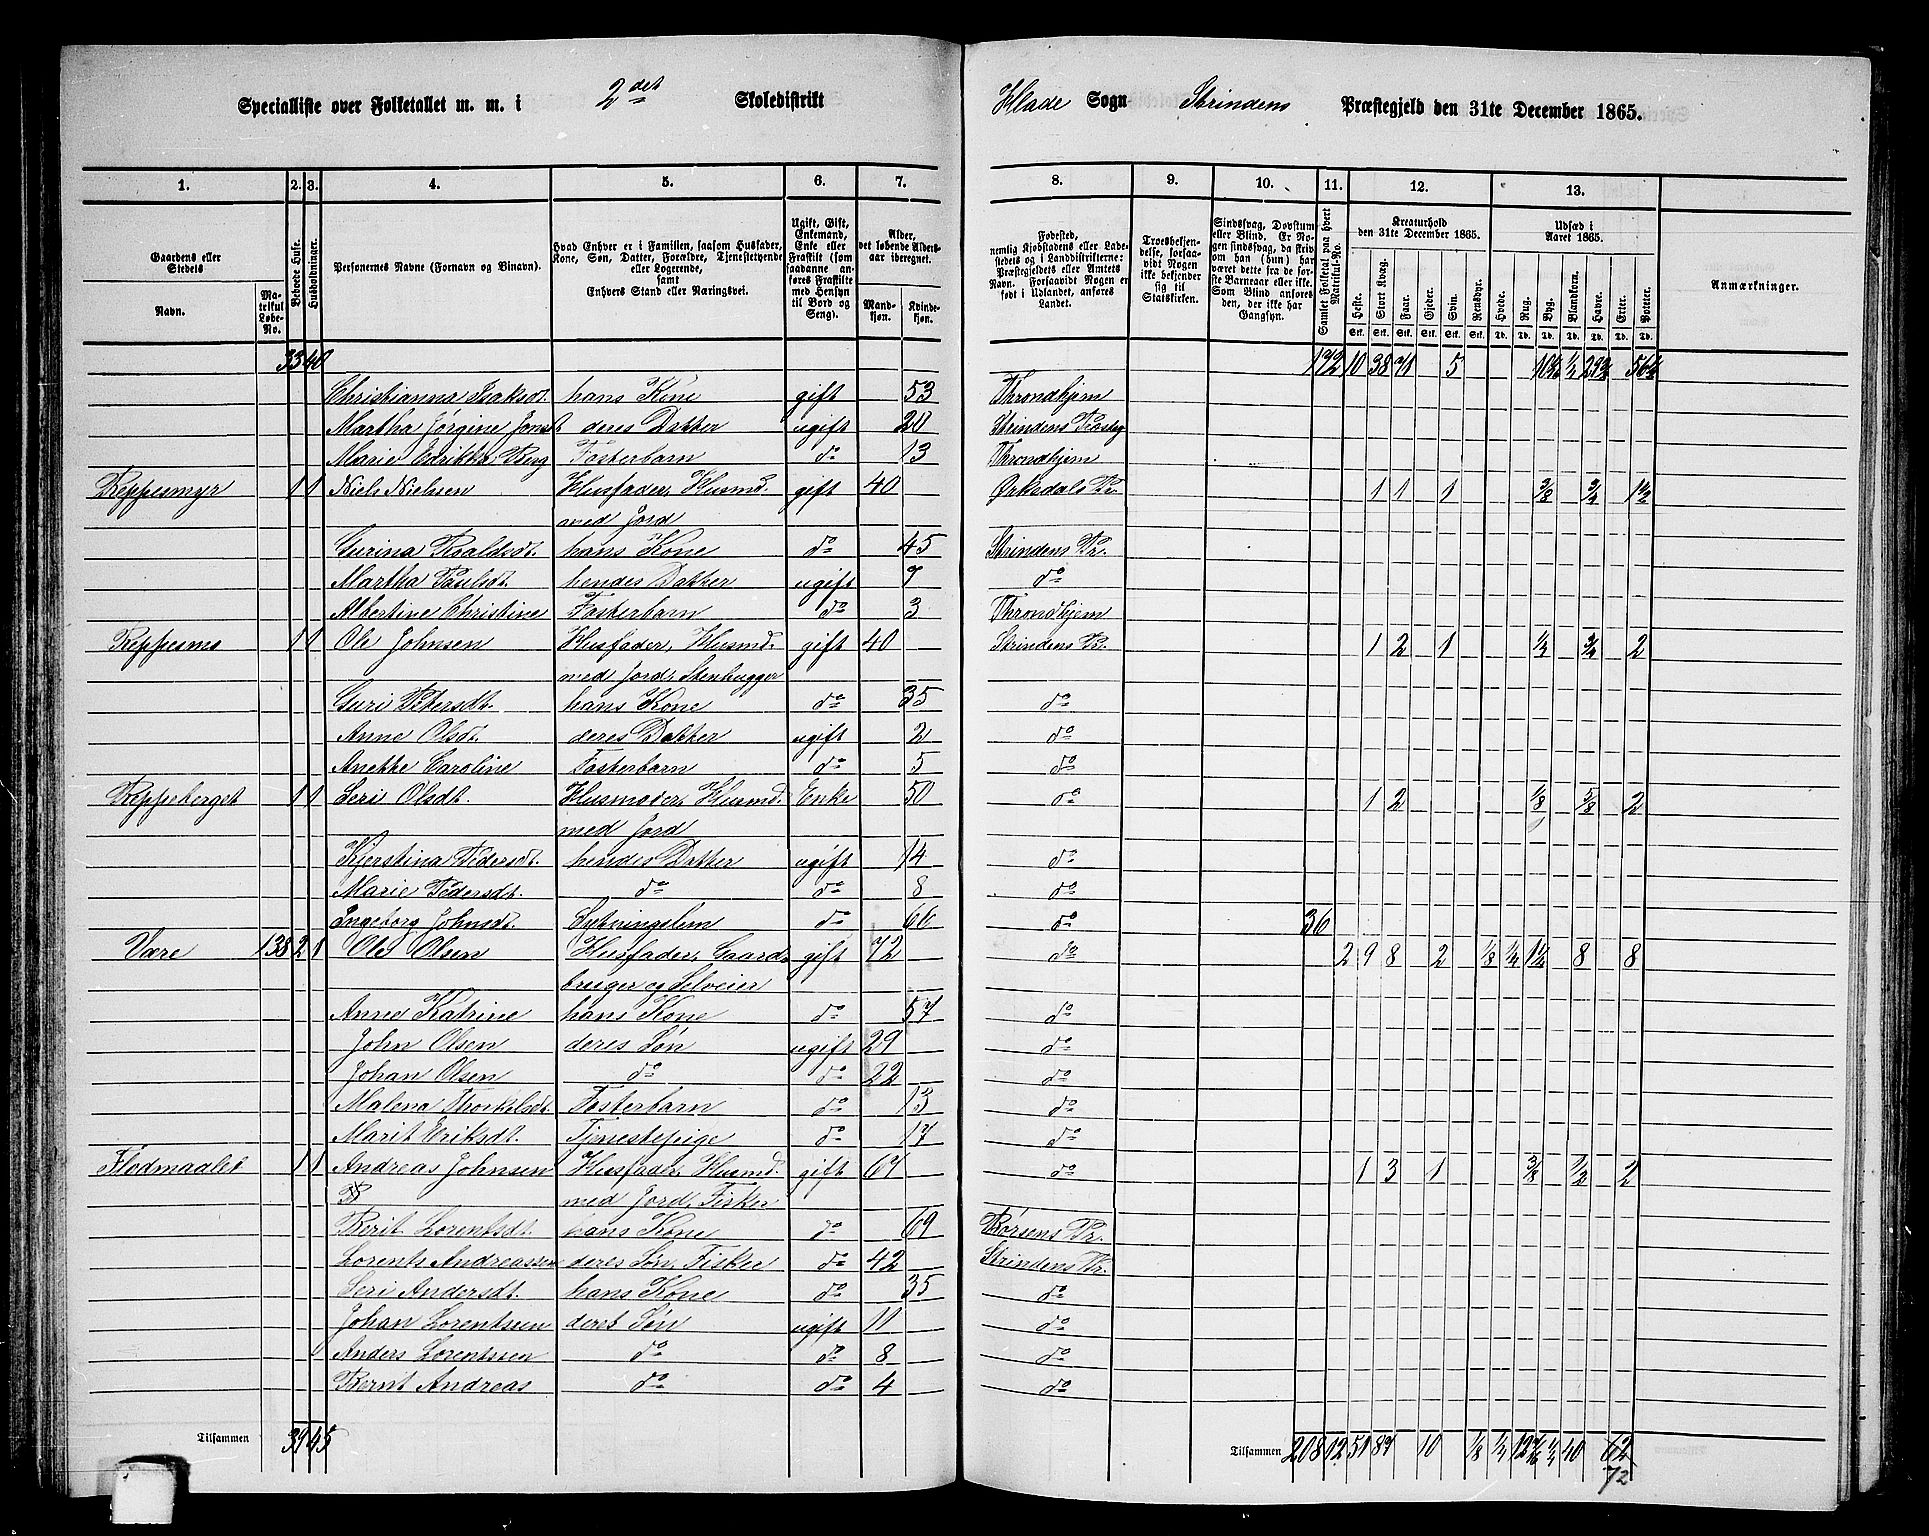 Specialliste over Folketallet m. m. i 2det Skoledistrikt Hlade Sogn Strindens Præstegjeld den 31te December 1865.
1. 2. 3. 4. 5. 6. 7. 8. 9. 10. 11. 12. 13.
Gaardens eller Stedets
Navn. Matrikul Løbe-No.
Beboede Huse.
Husholdninger.
Personernes Navne (Fornavn og Binavn).
Hvad Enhver er i Familien, saasom Husfader, Kone, Søn, Datter, Forældre, Tjenestetyende eller Logerende, samt Enhvers Stand eller Næringsvei.
Ugift, Gift, Enkemand, Enke eller Fraskilt (som saadanne anføres Fraskilte med Hensyn til Bord og Seng).
Alder, det løbende Aldersaar iberegnet.
Mandkjøn. Kvindekjøn.
Fødested, nemlig Kjøbstadens eller Ladestedets og i Landdistrikterne: Præstegjeldets eller Amtets Navn. Forsaavidt Nogen er født i Udlandet, anføres Landet.
Troesbekjendelse, forsaavidt Nogen ikke bekjender sig til Statskirken.
Sindssvag, Døvstum eller Blind. Er Nogen sindssvag, da skrives om han (hun) har været dette fra de første Barneaar eller ikke. Som Blind anføres den, der ikke har Gangsyn.
Samlet Folketal paa hvert Matrikul-No.
Kreaturhold den 31te December 1865.
Heste. Stort Kvæg. Faar. Gjeder. Svin. Rensdyr.
Udsæd i Aaret 1865.
Hvede. Rug. Byg. Blandkorn. Havre. Erter. Poteter.
Anmærkninger.
33 40 172 10 38 71 5
Christianna Isaksdt. hans Kone gift 53 Throndhjem
Martha Jørgine Jonsdt deres Datter ugift 20 Strindens
Marie Berg Fosterbarn do 13 Throndhjem
Reppesmyr 1 1 Niels Nielsen Husfader, Husmd. gift 40 Ørksdals Pr. 1 1 1 3/8 3/4 1 1/2
med Jord
Gurina Roaldsdt. hans Kone do 45 Strindens Pr.
Martha Paulsdt. hendes Datter ugift 7 do
Albertine Christine Fosterbarn do 3 Throndhjem
Reppesmo 1 1 Ole Johnsen Husfader, Husmd. gift 40 Strindens Pr. 1 2 1 1/4 3/4 2
med Jord, Stenhugger
Guri Petersdt. hans Kone do 35 do
Anne Olsdt. deres Datter ugift 2 do
Anette Caroline Fosterbarn do 5 do
Reppeberget 1 1 Seri Olsdt. Husmoder, Husmd. Enke 50 do 1 2 1/8 5/8 2
med Jord
Kjerstina Pedersdt. hendes Datter ugift 14 do
Marie Pedersdt. do do 8 do
Ingeborg Johnsdt. do 66 do 36
Være 138 2 1 Ole Olsen Husfader, Gaard- gift 72 do 2 9 8 2 1/8 1/4 1 1/4 8 8
bruger og Selveier
Anne Katrine hans Kone do 57 do
John Olsen deres Søn ugift 29 do
Johan Olsen do do 22 do
Malena Thorkelsdt. Fosterbarn do 13 do
Marit Eriksdt. Tjenestepige do 17 do
Flodmaalet 1 1 Andreas Johnsen Husfader, Husmd. gift 67 do 1 3 1 3/8 1/2 2
med Jord, Fisker
Berit Lorentsdt. hans Kone do 69 Børsens Pr.
Lorents Andreassen deres Søn, Fisker do 42 Strindens Pr.
Seri Andersdt. hans Kone do 35 do
Johan Lorentsen deres Søn ugift 11 do
Anders Lorentssen do do 8 do
Bernt Andreas do do 4 do
Tilsammen 39 45 Tilsammen 208 12 51 87 10 1/8 1/4 1/4 40 62
72